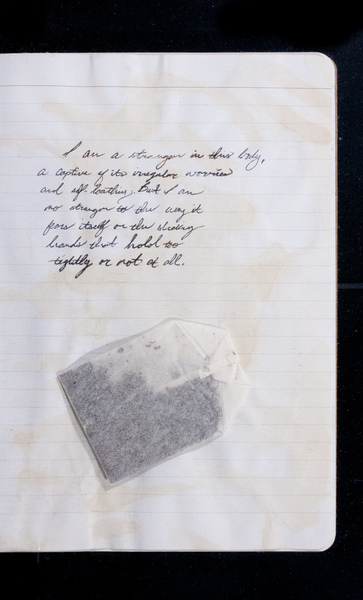 I am a stranger in this body,
a captive of its irregular worries
and self-loathing. But I am
no stranger to the way it
fears itself or the shaking
hands that hold too
tightly or not at all.